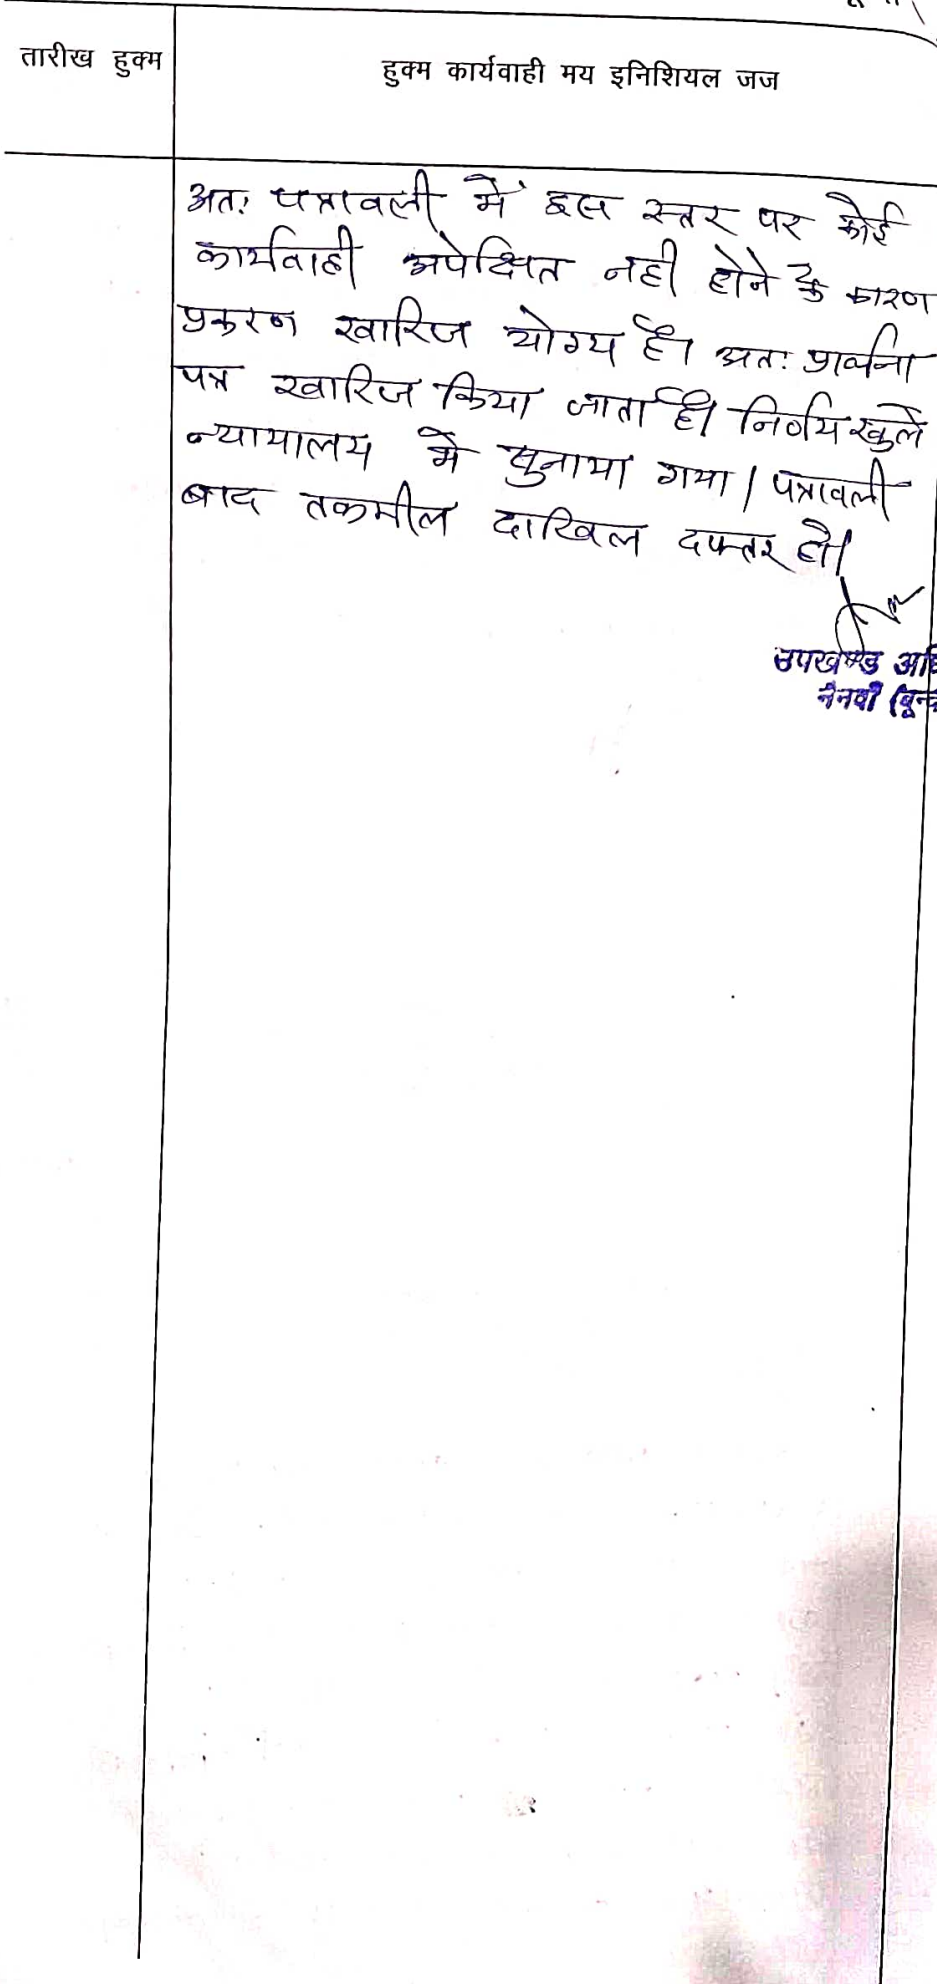 तारीख हुक्म
हुक्म कार्यवाही मय इनिशियल जज
अतः पत्रावली में इस स्तर पर कोई
कार्यवाही अपेक्षित नही होने के कारण
प्रकरण खारिज योग्य है। अतः प्रार्थना
पत्र खारिज किया जाता है। निर्णय खुले
न्यायालय मे सुनाया गया। पत्रावली
बाद तकमील दाखिल दफ्तर हो।
उपखण्ड
नैनवाँ